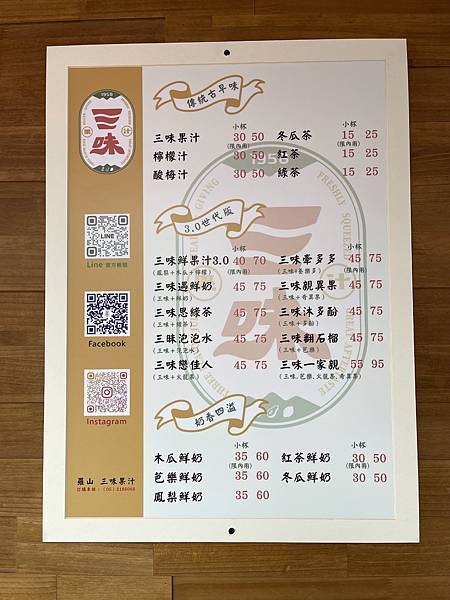 1958
三味
果 汁
Line 官方帳號
Facebook
Instagram
羅山 三味果汁
傳統古早味
小杯
三味果汁 30 50
(限內用)
檸檬汁 30 50
酸梅汁 30 50
小杯
冬瓜茶 15 25
(限內用)
紅茶 15 25
綠茶 15 25
3.0世代版
小杯
三味鮮果汁3.0 40 70
(鳳梨+木瓜+檸檬) (限內用)
三味遇鮮奶 45 75
(三味+鮮奶)
三味思綠茶 45 75
(三味+綠茶)
三味沱沱水 45 75
(三味+沱沱水)
三味戀佳人 45 75
(三味+火龍果)
小杯
三味牽多多 45 75
(三味+養樂多) (限內用)
三味親異果 45 75
(三味+奇異果)
三味沐多酚 45 75
(三味+多酚)
三味翻石榴 45 75
(三味+芭樂)
三味一家親 55 95
(三味,芭樂,火龍果,奇異果)
奶香四溢
小杯
木瓜鮮奶 35 60
(限內用)
芭樂鮮奶 35 60
鳳梨鮮奶 35 60
小杯
紅茶鮮奶 30 50
(限內用)
冬瓜鮮奶 30 50